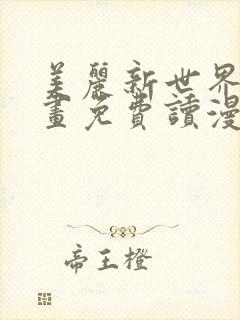 美麗新世界
畫免費讀漫
帝王橙